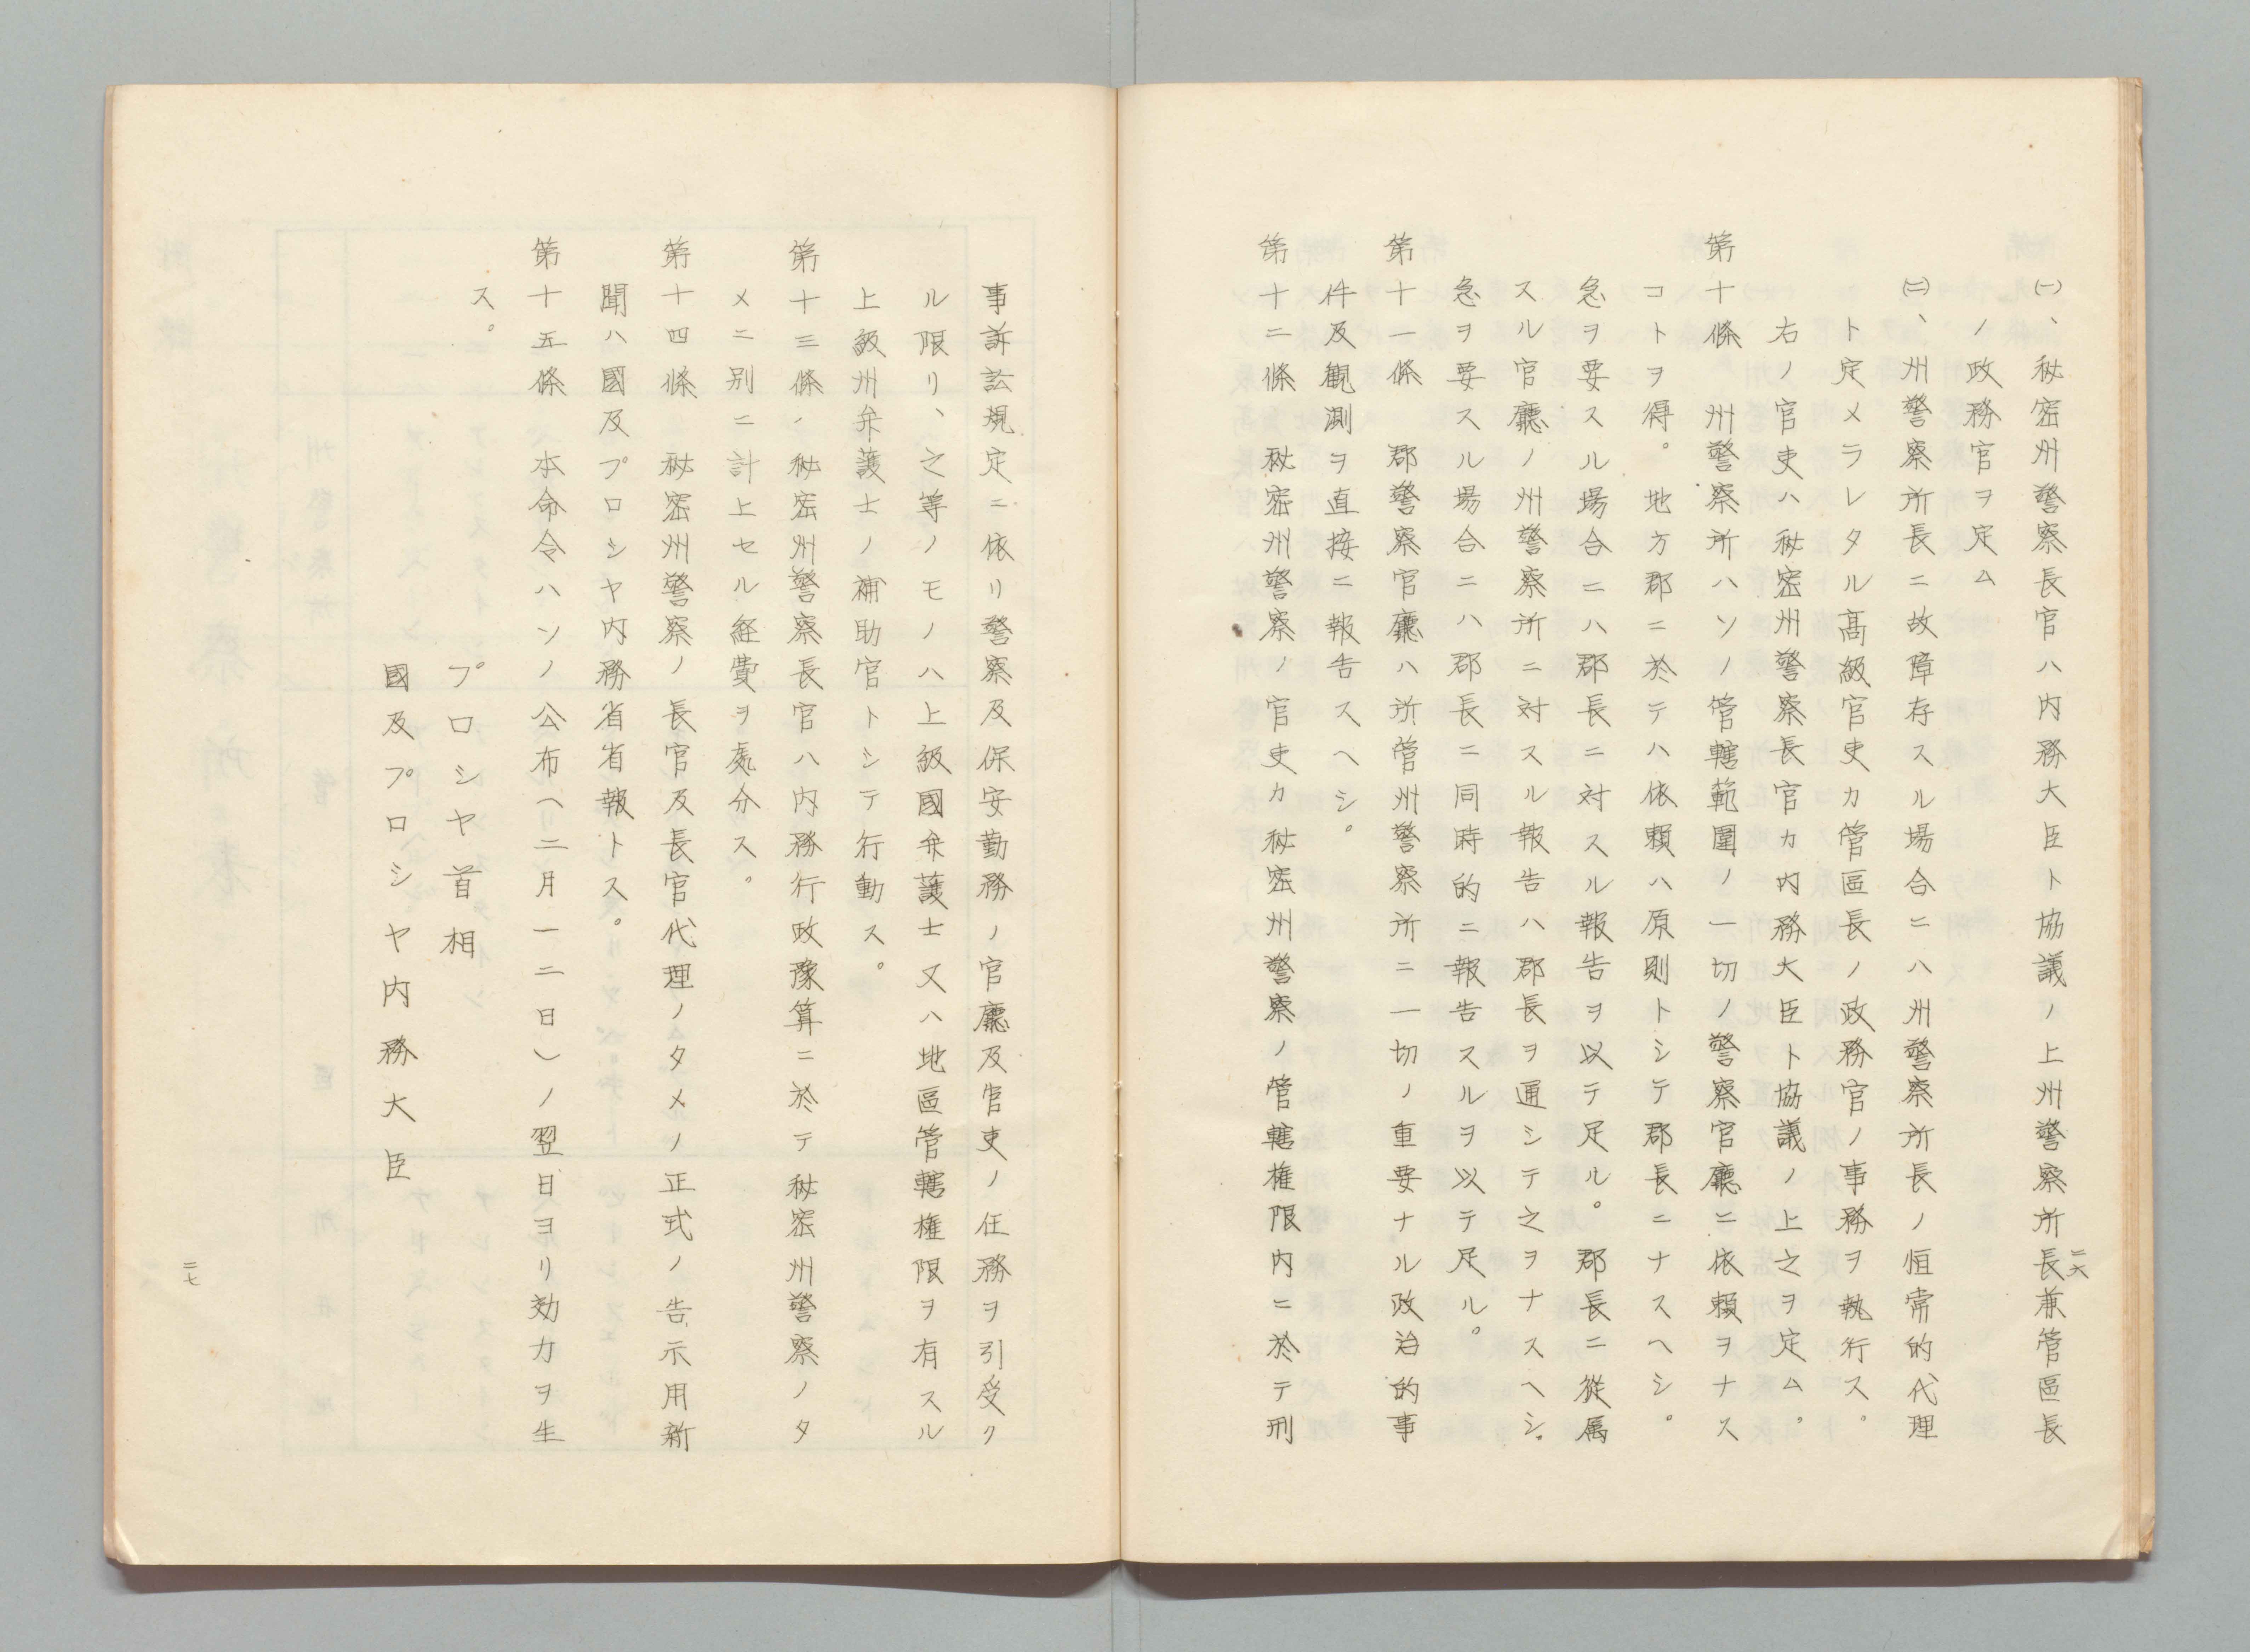 ㈠、秘密州警察長官ハ内務大臣ト協議ノ上州警察所長兼管區長
ノ政務官ヲ定ム
㈡、州警察所長ニ故障存スル場合ニハ州警察所長ノ恒常的代理
ト定メラレタル高級官吏カ管區長ノ政務官ノ事務ヲ執行ス。
右ノ官吏ハ秘密州警察長官カ内務大臣ト協議ノ上之ヲ定ム。
第十條　州警察所ハソノ管轄範圍ノ一切ノ警察官廳ニ依頼ヲナス
コトヲ得。地方郡ニ於テハ依頼ハ原則トシテ郡長ニナスヘシ。
急ヲ要スル場合ニハ郡長ニ対スル報告ヲ以テ足ル。郡長ニ從属
スル官廳ノ州警察所ニ対スル報告ハ郡長ヲ通シテ之ヲナスヘシ。
急ヲ要スル場合ニハ郡長ニ同時的ニ報告スルヲ以テ足ル。
第十一條　郡警察官廳ハ所管州警察所ニ一切ノ重要ナル政治的事
件及観測ヲ直接ニ報告スヘシ。
第十二條　秘密州警察ノ官吏カ秘密州警察ノ管轄権限内ニ於テ刑
二六
事訴訟規定ニ依リ警察及保安勤務ノ官廳及官吏ノ任務ヲ引受ク
ル限リ、之等ノモノハ上級國弁護士又ハ地區管轄権限ヲ有スル
上級州弁護士ノ補助官トシテ行動ス。
第十三條　秘密州警察長官ハ内務行政豫算ニ於テ秘密州警察ノタ
メニ別ニ計上セル経費ヲ處分ス。
第十四條　秘密州警察ノ長官及長官代理ノタメノ正式ノ告示用新
聞ハ國及プロシヤ内務省省報トス。
第十五條　本命令ハソノ公布（二月一二日）ノ翌日ヨリ効力ヲ生
ス。
プロシヤ首相
國及プロシヤ内務大臣
二七